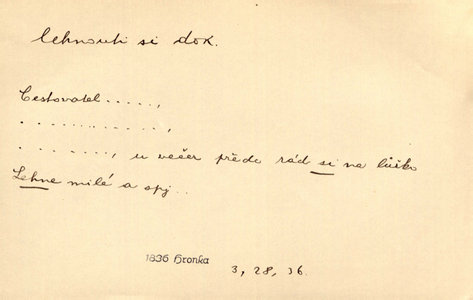 lehnouti si dok.
Cestovatel . . . . . ,
. . . . . . . . . . . . ,
. . . . . . . , u večer přede rád si na lůžko
Lehne milé a spí . .
1836 Hronka
3, 28, 36.